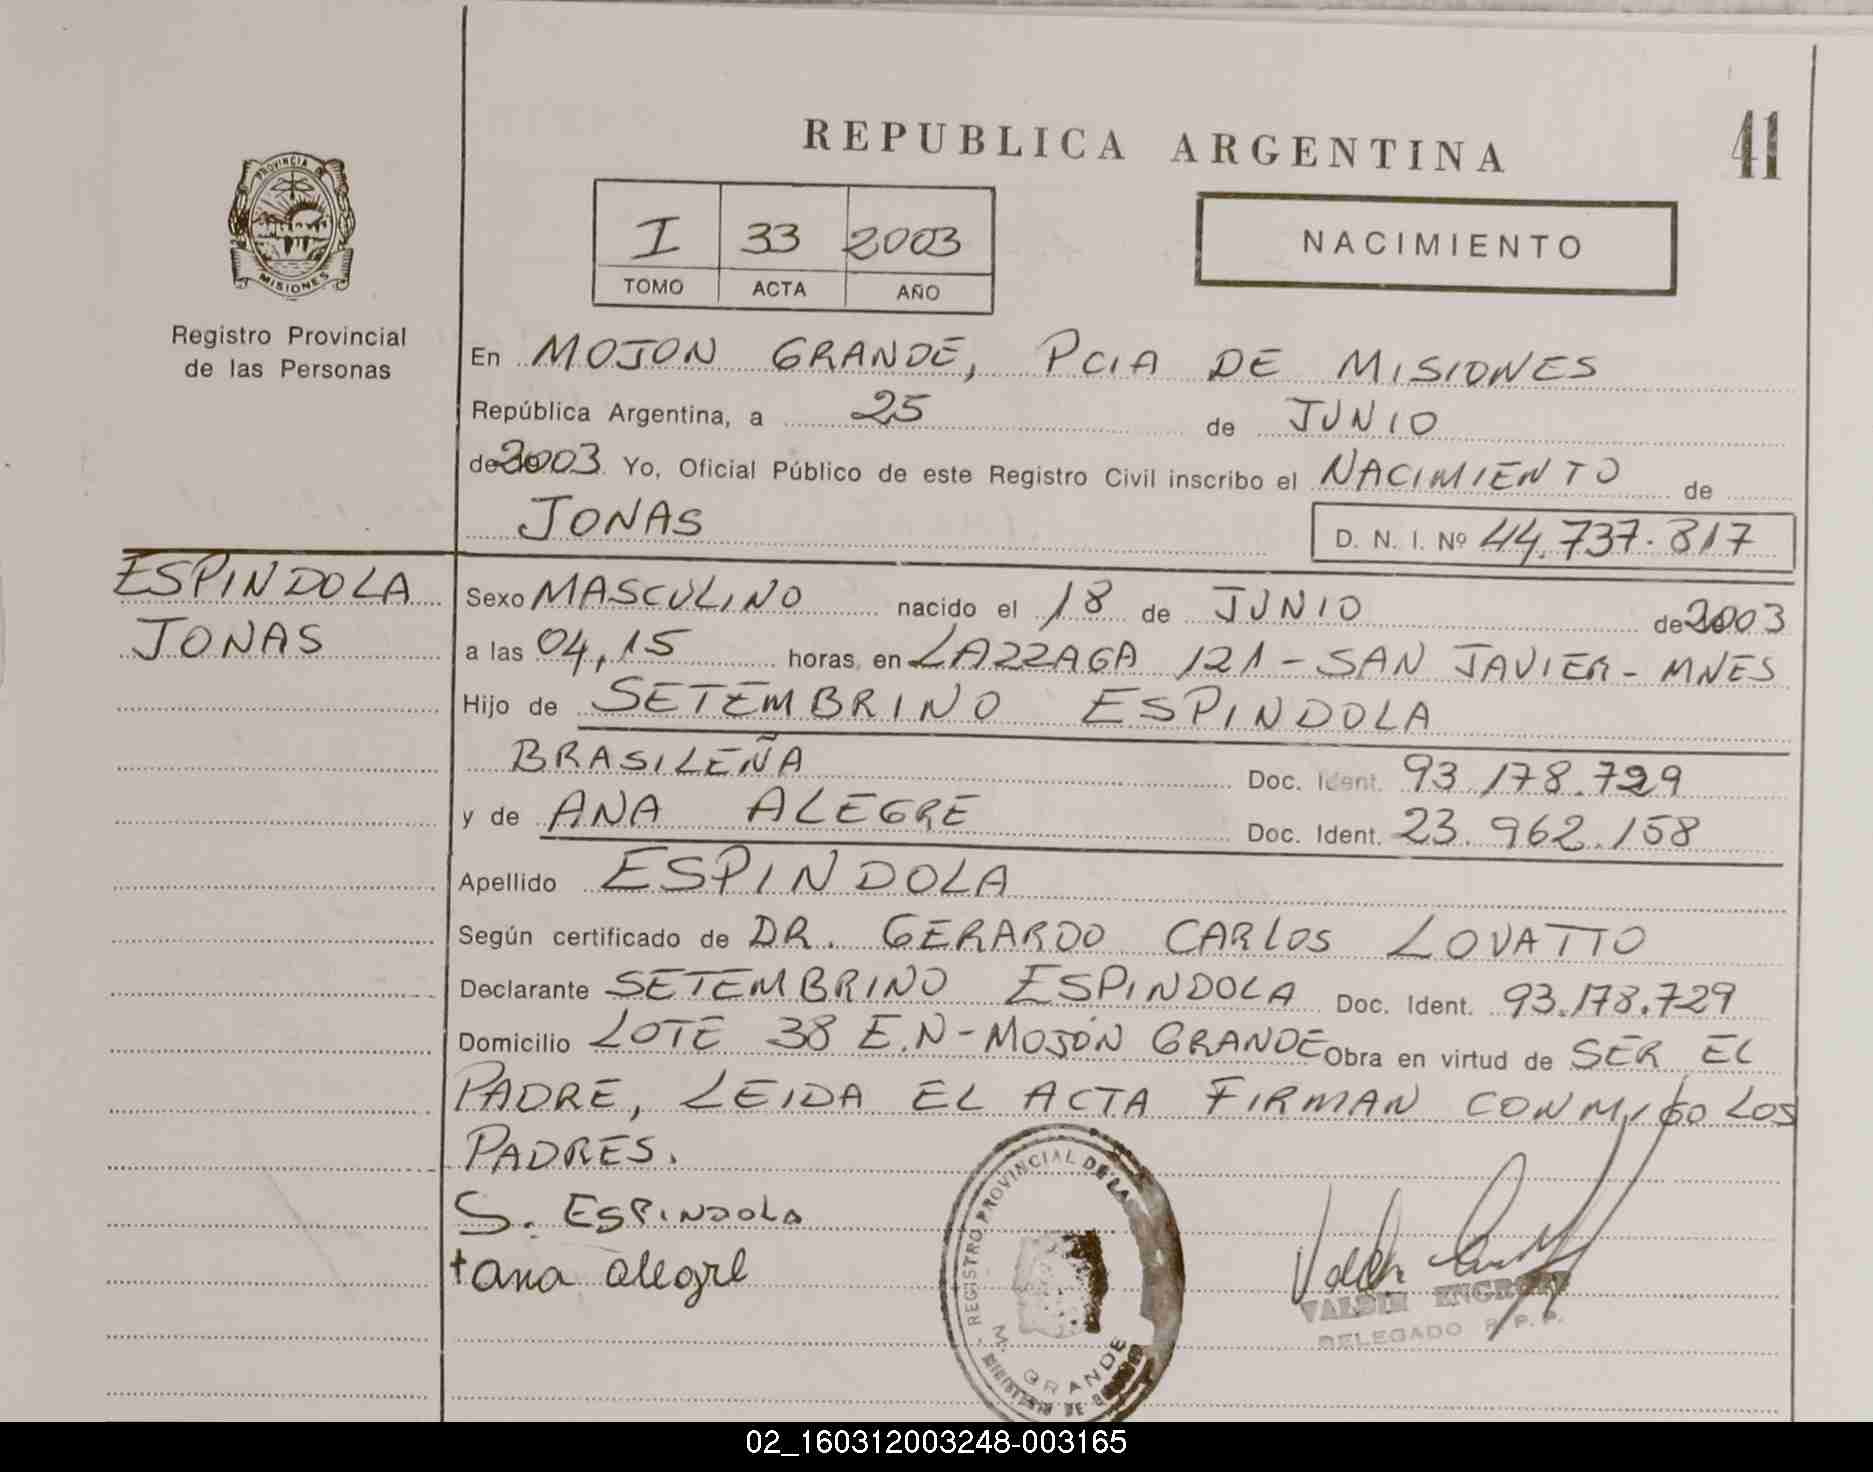 REPUBLICA ARGENTINA
41
PROVINCIA DE MISIONES
Registro Provincial
de las Personas
I 33 2003
TOMO ACTA AÑO
NACIMIENTO
En MOJON GRANDE, PCIA DE MISIONES
República Argentina, a 25 de JUNIO
de 2003. Yo, Oficial Público de este Registro Civil inscribo el NACIMIENTO de
JONAS
D. N. I. Nº 44.737.817
ESPINDOLA
JONAS
Sexo MASCULINO nacido el 18 de JUNIO de 2003
a las 04,15 horas, en LAZZAGA 121 - SAN JAVIER - MNES
Hijo de SETEMBRINO ESPINDOLA
BRASILEÑA Doc. Ident. 93.178.729
y de ANA ALEGRE Doc. Ident. 23.962.158
Apellido ESPINDOLA
Según certificado de DR. GERARDO CARLOS LOVATTO
Declarante SETEMBRINO ESPINDOLA Doc. Ident. 93.178.729
Domicilio LOTE 38 E.N - MOJÓN GRANDE Obra en virtud de SER EL
PADRE, LEIDA EL ACTA FIRMAN CONMIGO LOS
PADRES.
S. ESPINDOLA
+ Ana Alegre
REGISTRO PROVINCIAL DE LA
M. GRANDE
MINISTERIO DE
VALDIR
DELEGADO R.P.P.
02_160312003248-003165